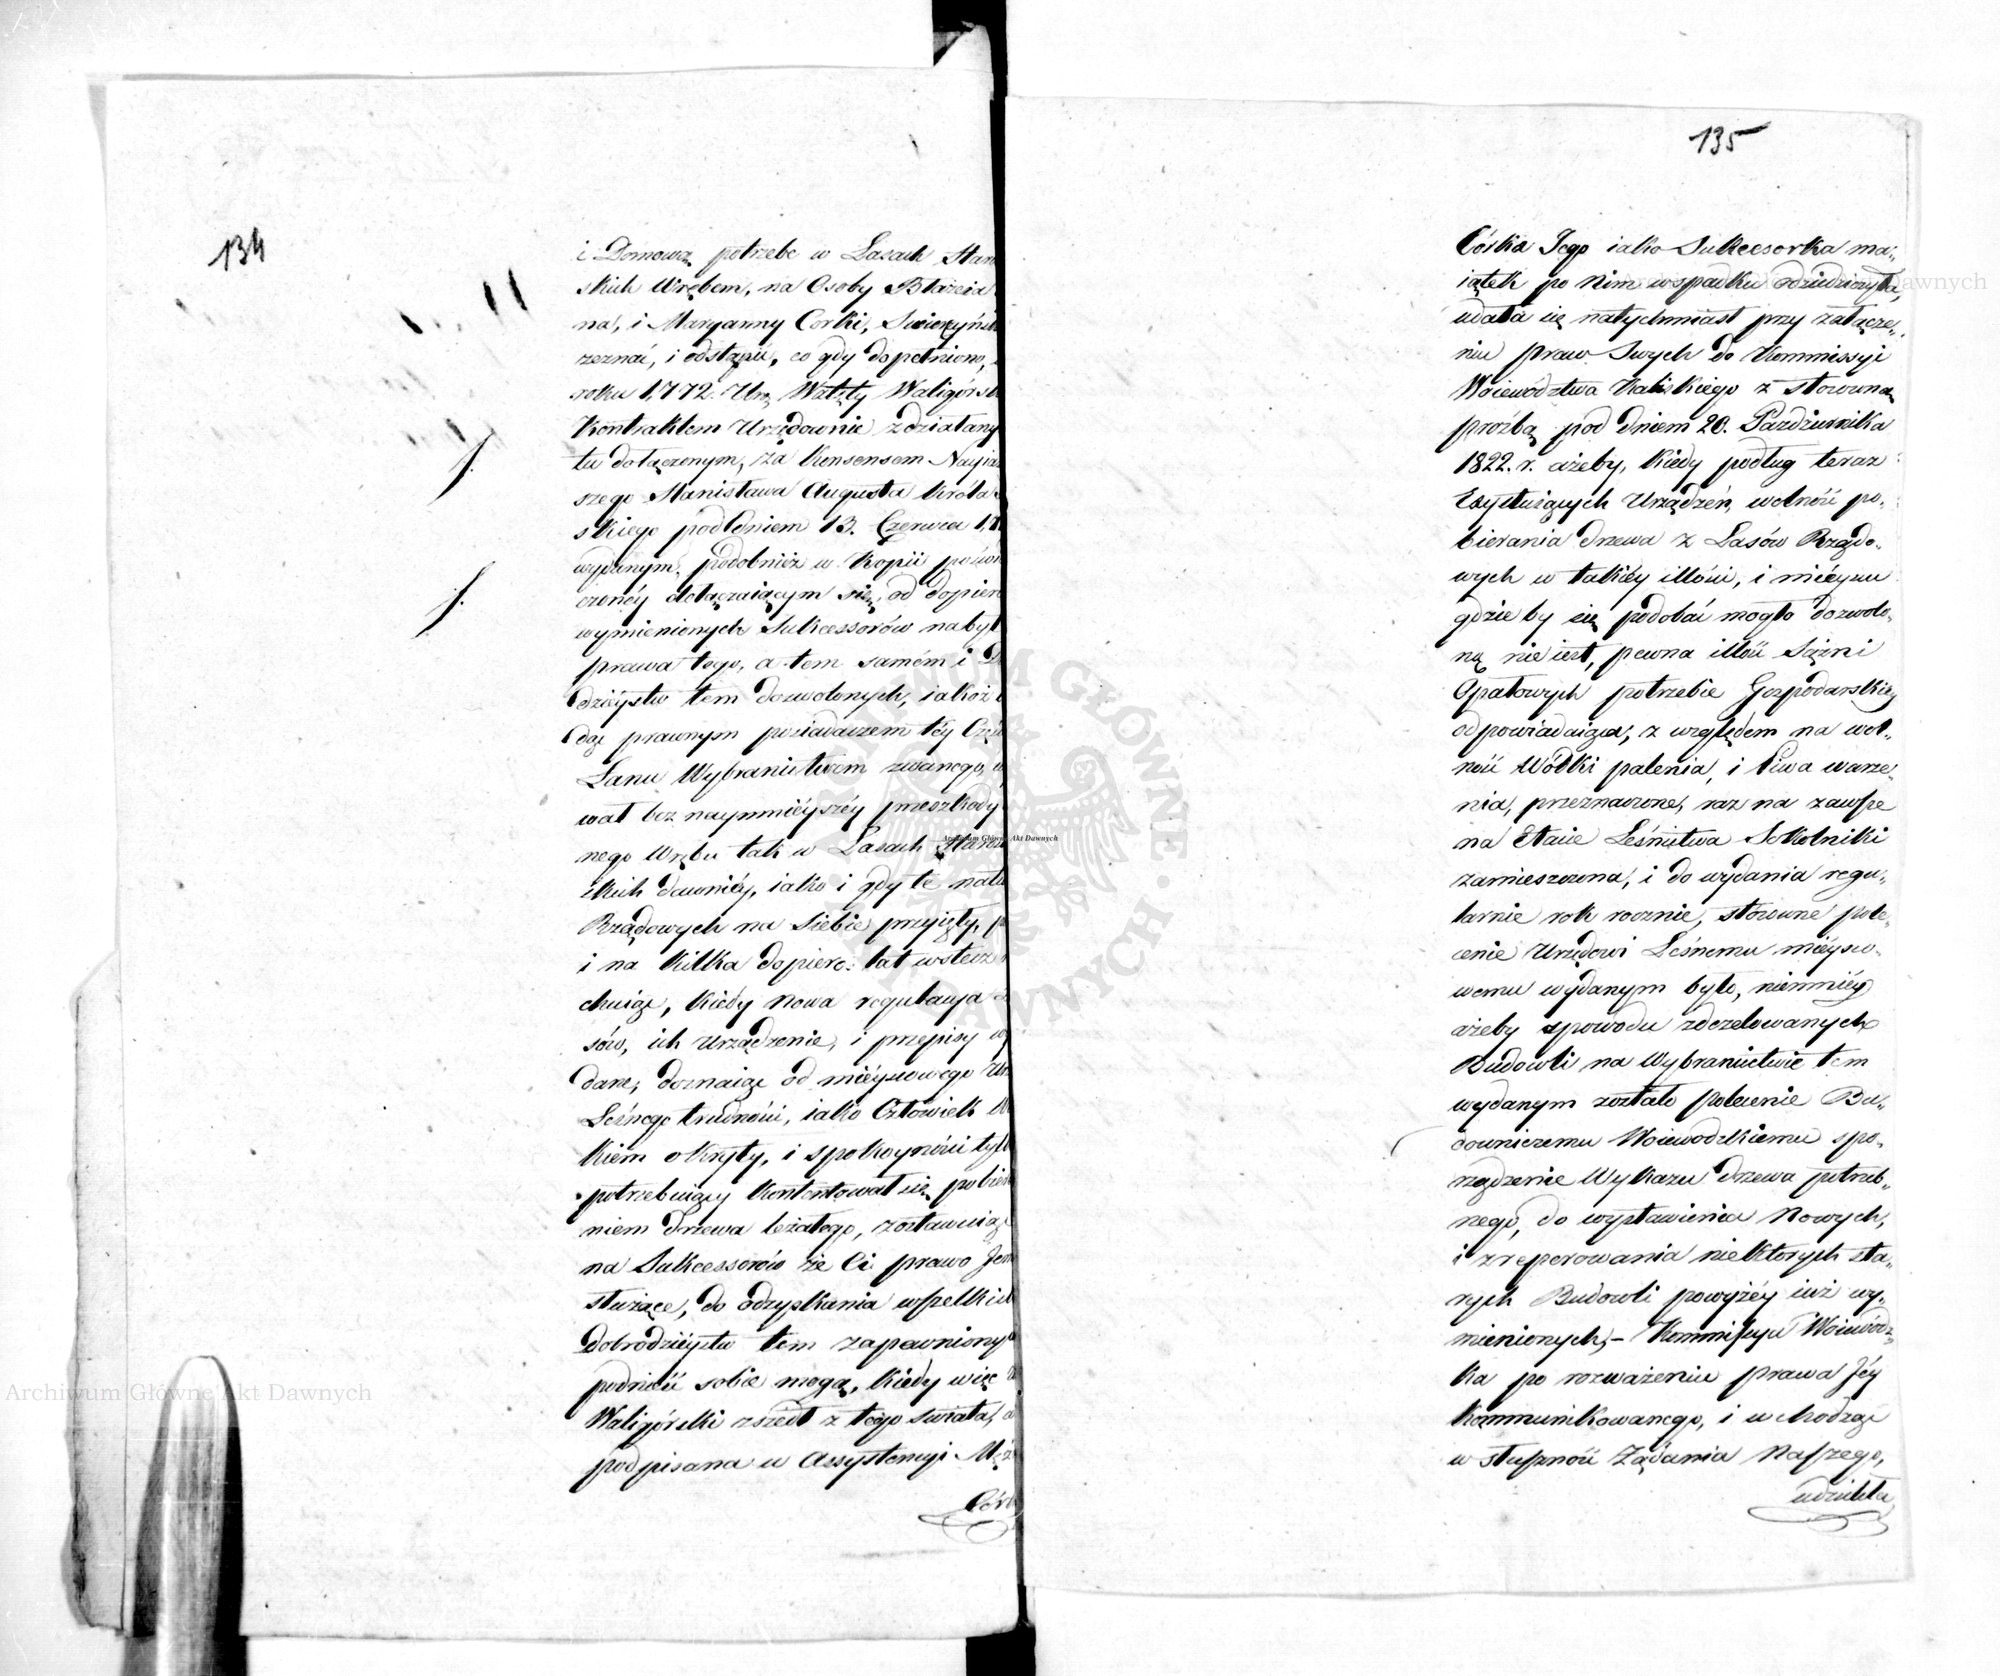 134
i Domową potrzebę w Lasach Stan
skich Wrębem, na Osoby Błażeia
na, i Maryanny Corki, Swierzyńsk
zeznać, i odstąpić, co gdy dopełniono,
roku 1,772. Ur. Wzięty Waligórsk
Kontraktem Urzędownie zdziałany
tu dołączonym, za Konsensem Nayia
szego Stanisława Augusta Króla
skiego pod dniem 13. Czerwca 1,7
wydanym, podobnież w Kopii poświ
czonéy dołączaiącym się, od dopier
wymienionych Sukcessorów nabył
prawa tego, a tem samém i D
dzieystw tem dozwolonych, iakoż
dąc prawnym posiadaczem téy Czę
Łanu Wybraniectwem zwanego,
wał bez naymnieyszéy przeszkody
nego Wrębu tak w Lasach Staro
skich dawniéy, iako i gdy te natu
Rządowych na siebie przyięły, p
i na kilka dopiero lat wstecz
chuiąc, kiedy nowa regulacya
sów, ich urządzenie, i przepisy w
dane, doznaiąc od mieyscowego Ur
Leśnego trudności, iako Człowiek
kiem okryty, i spokoyności tyl
potrzebuiący kontentował się pobier
niem drzewa leżałego, zostawuiąc
na Sukcessorów że Ci prawo Jem
służące, do odzyskania wszelkich
dobrodzieystw tem zapewniony
podnieść sobie mogą, kiedy więc
Waligórski zszedł z tego świata, a
podpisana w Assystencyi Męż
Córk
135
Córka Jego iako Sukcesorka ma„
iątek po Nim wspadku odziedziczyła,
udała się natychmiast przy załącze„
niu praw Swych do Kommissyi
Województwa Kaliskiego z stosowną
prośbą pod dniem 20. Października
1822. r. ażeby, kiedy podług teraz
Exystuiących Urządzeń, wolność po„
bierania drzewa z Lasów Rządo„
wych w takiéy ilości, i mieyscu
gdzie by się podobać mogło dozwolo„
ną nie iest, pewna ilość Sążni
Opałowych potrzebie Gospodarskiey
odpowiadaiąca, z względem na wol„
ność Wódki palenia, i Piwa warze„
nia, przeznaczone, raz na zawsze
na Etacie Leśnictwa Sokolniki
zamieszczona, i do wydania regu„
larnie rok rocznie, stosowne pole„
cenie Urzędowi Leśnemu mieysco„
wemu wydanym było, niemniéy
ażeby zpowodu zdezelowanych
Budowli na Wybraniectwie tem
wydanym zostało polecenie Bu„
downiczemu Woiewodzkiemu spo„
rządzenie Wykazu drzewa potrzeb„
nego, do wystawienia Nowych,
i zreperowania niektorych sta„
rych Budowli powyżéy iuż wy„
mienionych, – Kommissya Woiewódz„
ka po rozważeniu prawa Jéy
kommunikowanego, i wchodząc
w słuszność Żądania Naszego,
udzieliła
Archiwum Główne Akt Dawnych